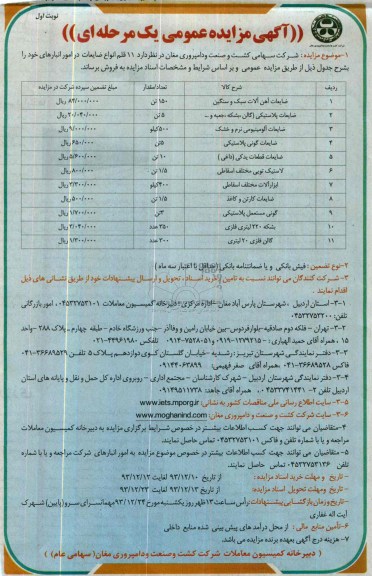 نوبت اول
((آگهی مزایده عمومی یک مرحله ای))
۱-موضوع مزایده: شرکت سهامی کشت و صنعت ودامپروری مغان در نظردارد ۱۱ قلم انواع ضایعات در امور انبارهای خود را
بشرح جدول ذیل از طریق مزایده عمومی و بر اساس شرایط و مشخصات اسناد مزایده به فروش برساند.
ردیف شرح کالا تعداد/مقدار مبلغ تضمین سپرده شرکت در مزایده
۱ ضایعات آهن آلات سبک و سنگین ۱۵۰ تن ۸۴/۰۰۰/۰۰۰ ریال
۲ ضایعات پلاستیکی (گالن بشکه جعبه و ... ۵ تن ۲/۰۴۰/۰۰۰ ریال
۳ ضایعات آلومینیومی نرم و خشک ۵۰۰کیلو ۹/۰۰۰/۰۰۰ ریال
۴ ضایعات گونی پلاستیکی ۵تن ۶۵۰/۰۰۰ ریال
۵ ضایعات قطعات یدکی (داغی) ۱۰ تن ۵/۶۰۰/۰۰۰ ریال
۶ لاستیک تویی مختلف اسقاطی ۱/۵ تن ۸۰۰/۰۰۰ ریال
۷ ابزارآلات مختلف اسقاطی ۴۰۰کیلو ۲/۳۰۰/۰۰۰ ریال
۸ ضایعات کارتن و کاغذ ۱/۵ تن ۵۰۰/۰۰۰ ریال
۹ گونی مستعمل پلاستیکی ۳تن ۱/۷۰۰/۰۰۰ ریال
۱۰ بشکه ۲۲۰ لیتری فلزی ۲۵۰ عدد ۲/۰۴۰/۰۰۰ ریال
۱۱ گالن فلزی ۲۰ لیتری ۲۰۰ عدد ۱/۳۰۰/۰۰۰ ریال
۲-نوع تضمین: فیش بانکی و یا ضمانتنامه بانکی (حداقل با اعتبار سه ماه)
۳- شرکت کنندگان می توانند نسبت به تامین / خرید اسناد، تحویل و ارسال پیشنهادات خود از طریق نشانی های ذیل
اقدام نمایند.
۱-۳- استان اردبیل، شهرستان پارس آباد مغان -اداره مرکزی- دبیرخانه کمیسیون معاملات ۰۴۵۳۲۷۵۳۱۰۱، امور بازرگانی
تلفن ۰۴۵۳۲۷۵۳۲۰۰
۲-۳- تهران - فلکه دوم صادقیه-بلوارفردوس-بین خیابان رامین و وفاآذر -جنب ورزشگاه خادم - طبقه چهارم-پلاک ۲۸۸-واحد
۱۵ ، همراه آقای حمید الهیاری
۳-۳- دفتر نمایندگی شهرستان تبریز: رشدیه - خیابان گلستان
فاکس همراه آقای صفر فهیمی:
۴-۳- دفتر نمایندگی شهرستان اردبیل - شهرک کارشناسان - مجتمع اداری - روبروی اداره کل حمل و نقل و پایانه های استان
اردبیل تلفن همراه آقای جاهد:
۵-۳- سایت اطلاع رسانی ملی مناقصات کشور به نشانی: www.iets.mporg.ir
۶-۳- سایت شرکت کشت و صنعت و دامپروری مغان: www.moghanind.com
۴-متقاضیان می توانند جهت کسب اطلاعات بیشتر در خصوص شرایط برگزاری مزایده به دبیرخانه کمیسیون معاملات
مراجعه و یا با شماره تلفن و فاکس ۰۴۵۳۲۷۵۳۱۰۱ تماس حاصل نمایند.
۵-متقاضیان می توانند جهت کسب اطلاعات بیشتر در خصوص موضوع مزایده به امور انبارهای شرکت مراجعه و یا با شماره
تلفن ۰۴۵۳۲۷۵۳۱۳۶ تماس حاصل نمایند.
- تاریخ و مهلت خرید اسناد مزایده : از تاریخ ۹۳/۱۲/۱۰ لغایت ۹۳/۱۲/۱۲
- تاریخ ومهلت تحویل اسناد مزایده : از تاریخ ۹۳/۱۲/۱۳ لغایت ۹۳/۱۲/۲۳
-تاریخ وزمان بازگشایی پیشنهادات: رأس ساعت ۱۳ ظهر روز یکشنبه مورخ ۹۳/۱۲/۲۴ مهمانسرای سرو (پایین) شهرک
آیت اله غفاری
۶- تأمین منابع مالی : از محل درآمد های پیش بینی شده منابع داخلی
۷- هزینه درج آگهی بعهده برنده مزایده می باشد.
( دبیر خانه کمیسیون معاملات شرکت کشت وصنعت ودامپروری مغان(سهامی عام) )